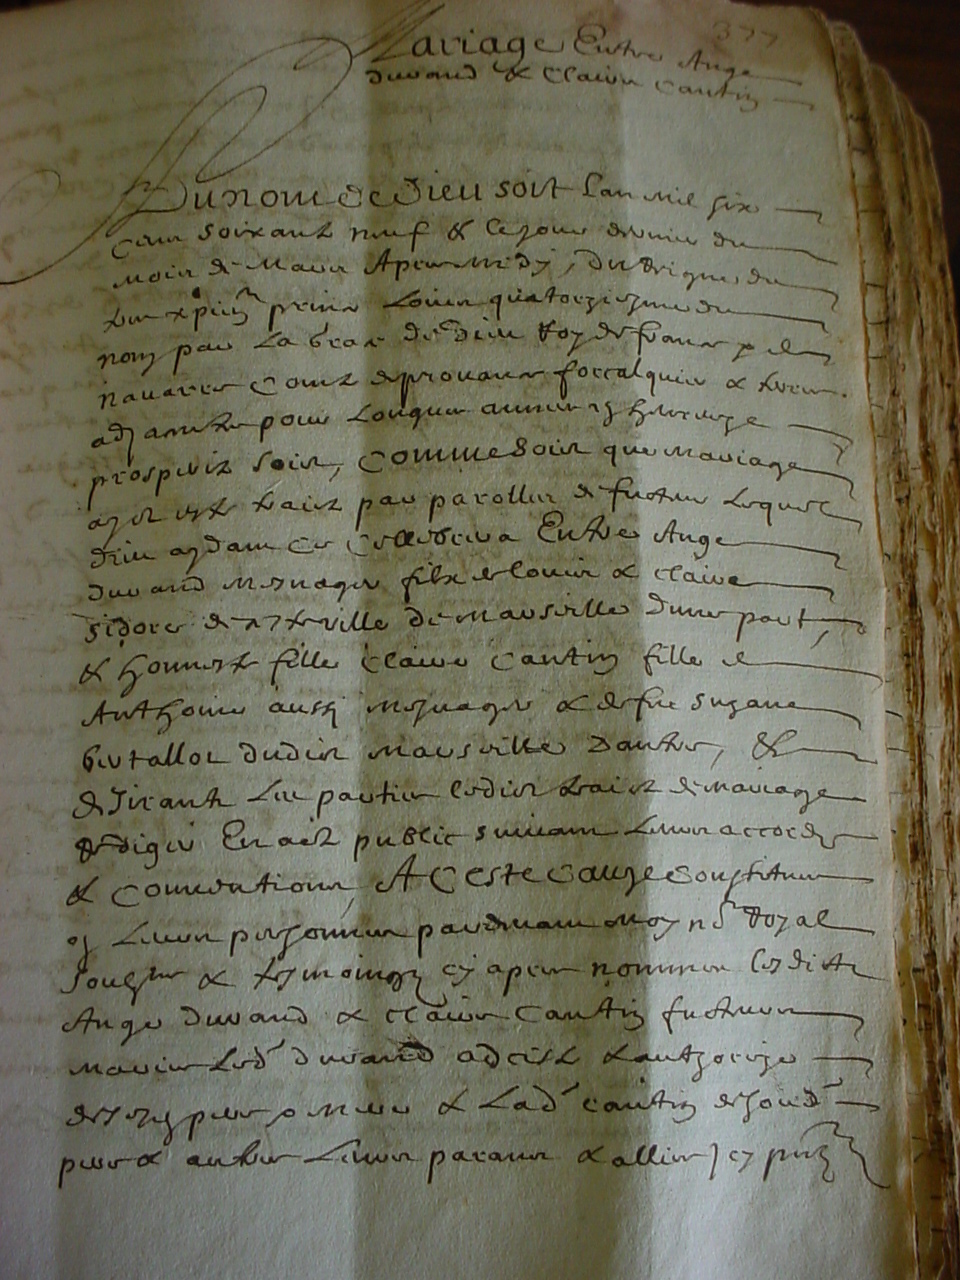 377
Mariage Entre Ange
durand & Claire Cantin
Au nom de Dieu soit Lan mil six
cens soixante neuf & le jour dernier du
mois de Mars Apres midy, Du reigne du
tres xpien prince Louis quatorziesme du
nom par La grace de Dieu Roy de france & de
navarre Comte de provance forcalquier & terres
adjacentes pour Longues annees heureuze
prosperité soict, Comme soict que Mariage
aye esté traicté par parolles de future Lequel
dieu aydant ce cellebrera Entre Ange
durand mesnager filz de louis & claire
sidore de ceste ville de Marseille dune part,
& honneste fille Claire Cantin fille d
Anthoine aussi mesnager & de fue suzane
dudict Marseille Dautre, &
dezirantz Les parties ledict traicté de mariage
Redigé En acte public suivant Leurs accordz
& conventions, A Ceste Cauze Constitues
en Leurs personnes pardevant Moy nre Royal
soubzne & tesmoingz cy apres nommes lesdictz
Ange durand & claire Cantin futeurs
maries Led durand adcisté & authorizé
de ses pere & mere & Lad Cantin de sond
pere & autres Leurs parans & allies cy pntz